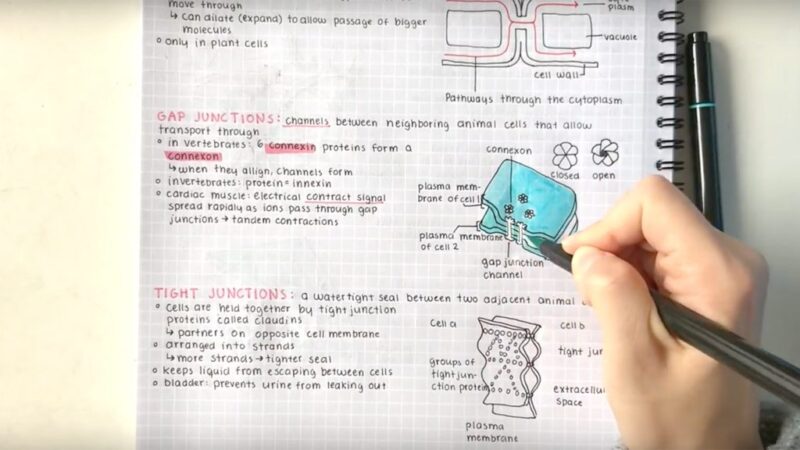 move through
↳ can dilate (expand) to allow passage of bigger
molecules
• only in plant cells
plasm
vacuole
cell wall
Pathways through the cytoplasm
GAP JUNCTIONS: channels between neighboring animal cells that allow
transport through
• in vertebrates: 6 connexin proteins form a
connexon
↳ when they allign, channels form
• invertebrates: protein = innexin
• cardiac muscle: electrical contract signal
spread rapidly as ions pass through gap
junctions → tandem contractions
connexon
closed
open
plasma mem-
brane of cell 1
plasma membrane
of cell 2
gap junction
channel
TIGHT JUNCTIONS: a watertight seal between two adjacent animal
• cells are held together by tight junction
proteins called claudins
↳ partners on opposite cell membrane
• arranged into strands
↳ more strands → tighter seal
• keeps liquid from escaping between cells
• bladder: prevents urine from leaking out
cell a
cell b
tight jun
groups of
tight jun-
ction protein
extracellu
space
plasma
membrane